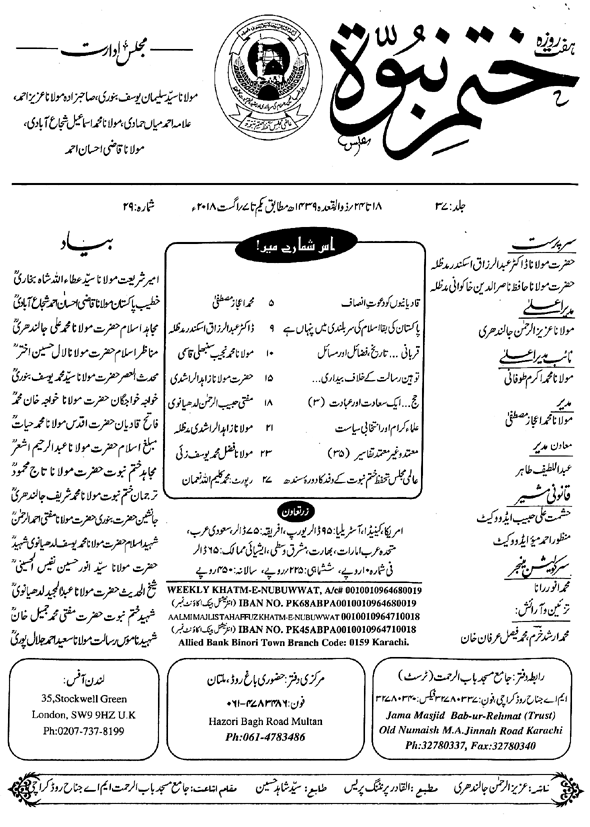 ہفت روزہ
ختم نبوۃ
مجلس
مجلس ادارت
مولانا سید سلیمان یوسف بنوری، صاحبزادہ مولانا عزیز احمد،
علامہ احمد میاں حمادی، مولانا محمد اسماعیل شجاع آبادی،
مولانا قاضی احسان احمد
جلد: ۳۷ ۱۸ تا ۲۴؍ ذوالقعدہ ۱۴۳۹ھ مطابق یکم تا ۷؍ اگست ۲۰۱۸ء شمارہ: ۲۹
سرپرست
حضرت مولانا ڈاکٹر عبدالرزاق اسکندر مدظلہ
حضرت مولانا حافظ ناصر الدین خاکوانی مدظلہ
مدیر اعلیٰ
مولانا عزیز الرحمٰن جالندھری
نائب مدیر اعلیٰ
مولانا محمد اکرم طوفانی
مدیر
مولانا محمد اعجاز مصطفیٰ
معاون مدیر
عبداللطیف طاہر
قانونی مشیر
حشمت علی حبیب ایڈووکیٹ
منظور احمد میؤ ایڈووکیٹ
سرکولیشن منیجر
محمد انور رانا
تزئین و آرائش:
محمد ارشد خرم، محمد فیصل عرفان خان
اس شمارے میں!
قادیانیوں کو دعوتِ انصاف ۵ محمد اعجاز مصطفیٰ
پاکستان کی بقا اسلام کی سربلندی میں پنہاں ہے ۹ ڈاکٹر عبدالرزاق اسکندر مدظلہ
قربانی... تاریخ، فضائل اور مسائل ۱۰ مولانا محمد نجیب سنبھلی قاسمی
توہین رسالت کے خلاف بیداری... ۱۵ حضرت مولانا زاہد الراشدی
حج... ایک سعادت اور عبادت (۳) ۱۸ مفتی حبیب الرحمٰن لدھیانوی
علماء کرام اور انتخابی سیاست ۲۱ مولانا زاہد الراشدی مدظلہ
معتمد و غیر معتمد تفاسیر (۳۵) ۲۳ مولانا فضل محمد یوسف زئی
عالمی مجلس تحفظ ختم نبوت کے وفد کا دورۂ سندھ ۲۷ رپورٹ: محمد کلیم اللہ نعمان
زرتعاون
امریکا، کینیڈا، آسٹریلیا: ۹۵ ڈالر یورپ، افریقہ: ۷۵ ڈالر، سعودی عرب،
متحدہ عرب امارات، بھارت، مشرق وسطیٰ، ایشیائی ممالک: ۶۵ ڈالر
فی شمارہ ۱۰ روپے، ششماہی: ۲۲۵ روپے، سالانہ: ۴۵۰ روپے
WEEKLY KHATM-E-NUBUWWAT, A/c# 0010010964680019
IBAN NO. PK68ABPA0010010964680019 (انٹرنیشنل بینک اکاؤنٹ نمبر)
AALMI MAJLIS TAHAFFUZ KHATM-E-NUBUWWAT 0010010964710018
IBAN NO. PK45ABPA0010010964710018 (انٹرنیشنل بینک اکاؤنٹ نمبر)
Allied Bank Binori Town Branch Code: 0159 Karachi.
بیاد
امیر شریعت مولانا سید عطاء اللہ شاہ بخاریؒ
خطیب پاکستان مولانا قاضی احسان احمد شجاع آبادیؒ
مجاہد اسلام حضرت مولانا محمد علی جالندھریؒ
مناظر اسلام حضرت مولانا لال حسین اخترؒ
محدث العصر حضرت مولانا سید محمد یوسف بنوریؒ
خواجہ خواجگان حضرت مولانا خواجہ خان محمدؒ
فاتح قادیان حضرت اقدس مولانا محمد حیاتؒ
مبلغ اسلام حضرت مولانا عبدالرحیم اشعرؒ
مجاہد ختم نبوت حضرت مولانا تاج محمودؒ
ترجمان ختم نبوت حضرت مولانا محمد شریف جالندھریؒ
جانشین حضرت بنوری حضرت مولانا مفتی احمد الرحمٰنؒ
شہید اسلام حضرت مولانا محمد یوسف لدھیانوی شہیدؒ
حضرت مولانا سید انور حسین نفیس الحسینیؒ
شیخ الحدیث حضرت مولانا عبدالمجید لدھیانویؒ
شہید ختم نبوت حضرت مفتی محمد جمیل خانؒ
شہید ناموس رسالت مولانا سعید احمد جلال پوریؒ
رابطہ دفتر: جامع مسجد باب الرحمت (ٹرسٹ)
ایم اے جناح روڈ کراچی فون: ۳۲۷۸۰۳۳۷ فیکس: ۳۲۷۸۰۳۴۰
Jama Masjid Bab-ur-Rehmat (Trust)
Old Numaish M.A.Jinnah Road Karachi
Ph:32780337, Fax:32780340
مرکزی دفتر: حضوری باغ روڈ، ملتان
فون: ۰۶۱-۴۷۸۳۴۸۶
Hazori Bagh Road Multan
Ph:061-4783486
لندن آفس:
35,Stockwell Green
London, SW9 9HZ U.K
Ph:0207-737-8199
ناشر: عزیز الرحمٰن جالندھری مطبع: القادر پرنٹنگ پریس طابع: سید شاہد حسین مقام اشاعت: جامع مسجد باب الرحمت ایم اے جناح روڈ کراچی